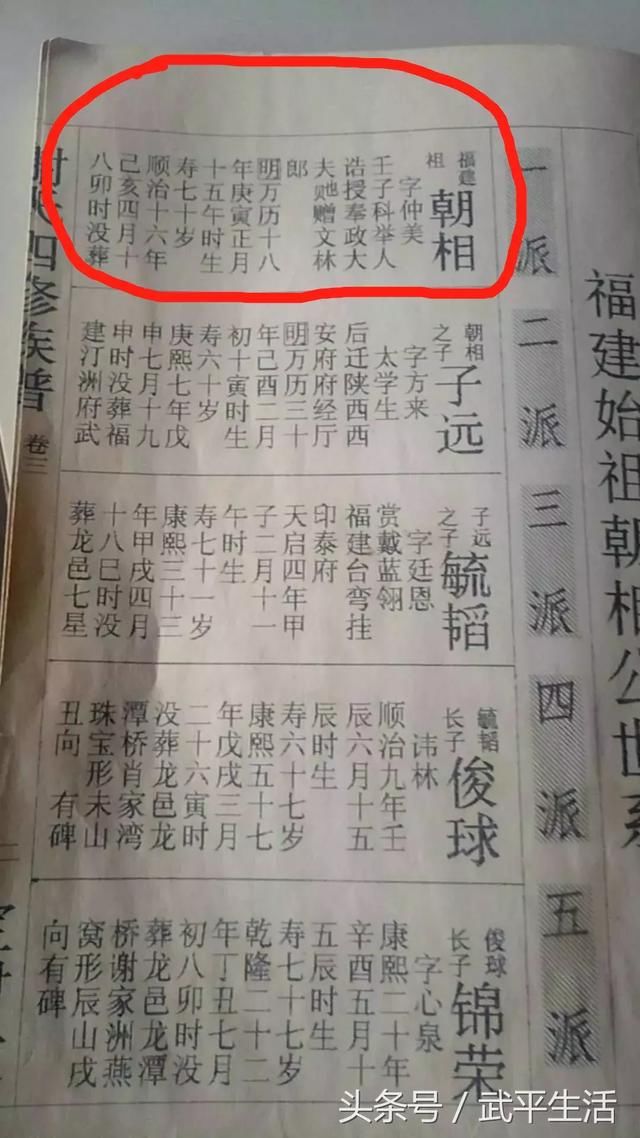 福建始祖朝相公世系
一派
福建
祖
朝相
字仲美
壬子科举人
诰授奉政大
夫虵赠文林
郎
明万历十八
年庚寅正月
十五午时生
寿七十岁
顺治十六年
己亥四月十
八卯时没葬
二派
朝相
之子
子远
字方来
太学生
后迁陕西西
安府府经厅
明万历三十
年己酉二月
初十寅时生
寿六十岁
庚熙七年戊
申七月十九
申时没葬福
建汀洲府武
三派
子远
之子
毓韬
字廷恩
赏戴蓝翎
福建台弯挂
印泰府
天启四年甲
子二月十一
午时生
寿七十一岁
康熙三十三
年甲戌四月
十八巳时没
葬龙邑七星
四派
毓韬
长子
俊球
讳林
顺治九年壬
辰六月十五
辰时生
寿六十七岁
康熙五十七
年戊戌三月
二十六寅时
没葬龙邑龙
潭桥肖家湾
珠宝形未山
丑向 有碑
五派
俊球
长子
锦荣
字心泉
康熙二十年
辛酉五月十
五辰时生
寿七十七岁
乾隆二十二
年丁丑七月
初八卯时没
葬龙邑龙潭
桥谢家洲燕
窝形辰山戌
向有碑
四修族普
卷三
头条号/武平生活